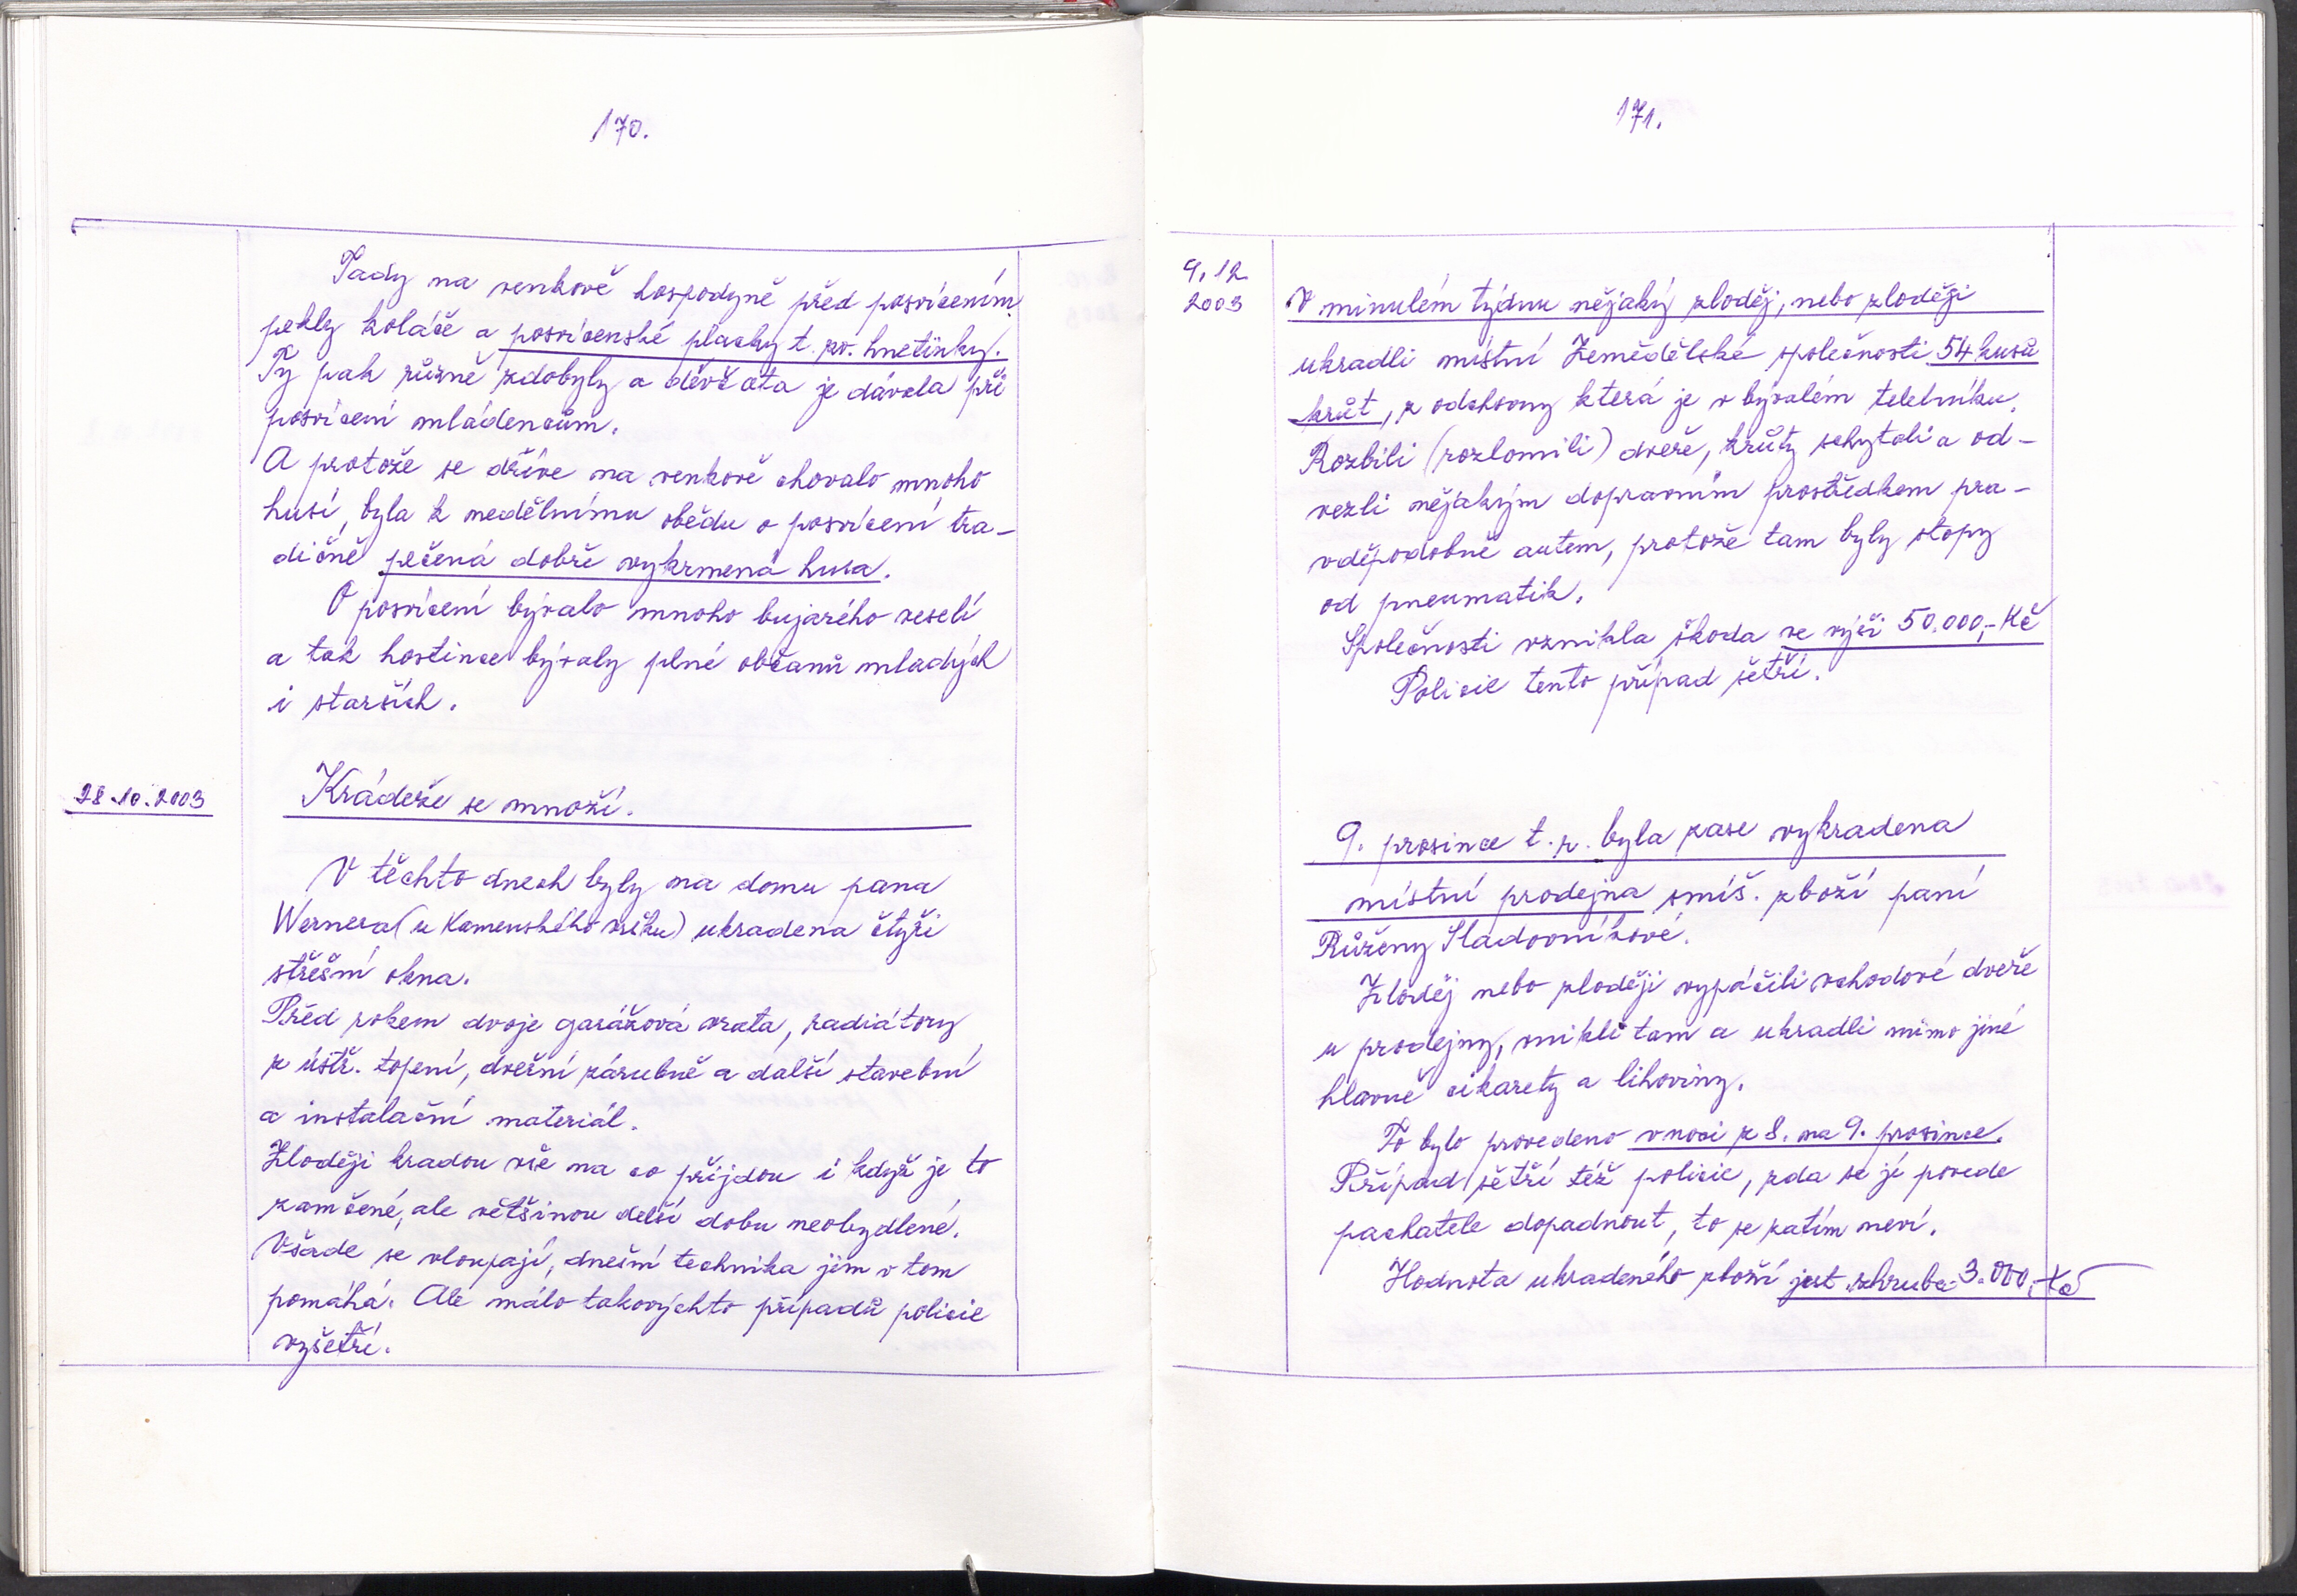 170.
Tady na venkově hospodyně před posvícením
pekly koláče a posvícenské placky t. zv. hnetýnky.
Ty pak různě zdobyly a děvčata je dávala při
posvícení mládencům.
A protože se dříve na venkově chovalo mnoho
husí, byla k nedělnímu obědu o posvícení tra-
dičně pečená dobře vykrmená husa.
O posvícení bývalo mnoho bujarého veselí
a tak hostince bývaly plné občanů mladých
i starších.
28.10.2003
Krádeže se množí.
V těchto dnech byly na domu pana
Wernera (u Kamenského vršku) ukradena čtyři
střešní okna.
Před rokem dvoje garážová vrata, radiátory
z ústř. topení, dveřní zárubně a další stavební
a instalační materiál.
Zloději kradou vše na co přijdou i když je to
zamčené, ale většinou delší dobu neobydlené.
Všade se vloupají, dnešní technika jim v tom
pomáhá. Ale málo takovýchto případů policie
vyšetří.
171.
9.12
2003
V minulém týdnu nějaký zloděj, nebo zloději
ukradli místní Zemědělské společnosti 54 kusů
krůt, z odchovny která je v bývalém teletníku.
Rozbili (rozlomili) dveře, krůty schytali a od-
vezli nějakým dopravním prostředkem pra-
vděpodobně autem, protože tam byly stopy
od pneumatik.
Společnosti vznikla škoda ve výši 50.000,- Kč
Policie tento případ šetří.
9. prosince t. r. byla zase vykradena
místní prodejna smíš. zboží paní
Růženy Sladovníkové.
Zloděj nebo zloději vypáčili vchodové dveře
u prodejny, vnikli tam a ukradli mimo jiné
hlavně cikarety a lihoviny.
To bylo provedeno v noci z 8. na 9. prosince.
Případ šetří též policie, zda se jí povede
pachatele dopadnout, to se zatím neví.
Hodnota ukradeného zboží jest zhruba 3.000,- Kč